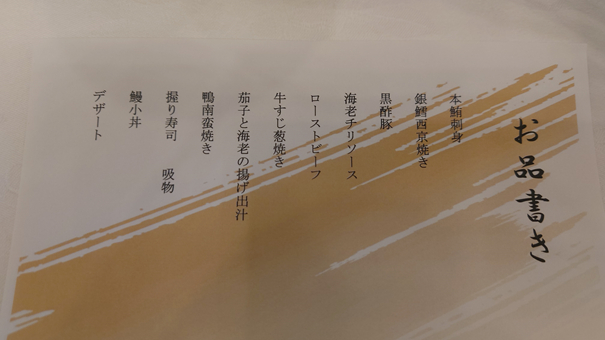 お品書き
本鮪刺身
銀鱈西京焼き
黒酢豚
海老チリソース
ローストビーフ
牛すじ葱焼き
茄子と海老の揚げ出汁
鴨南蛮焼き
握り寿司 吸物
鰻小丼
デザート